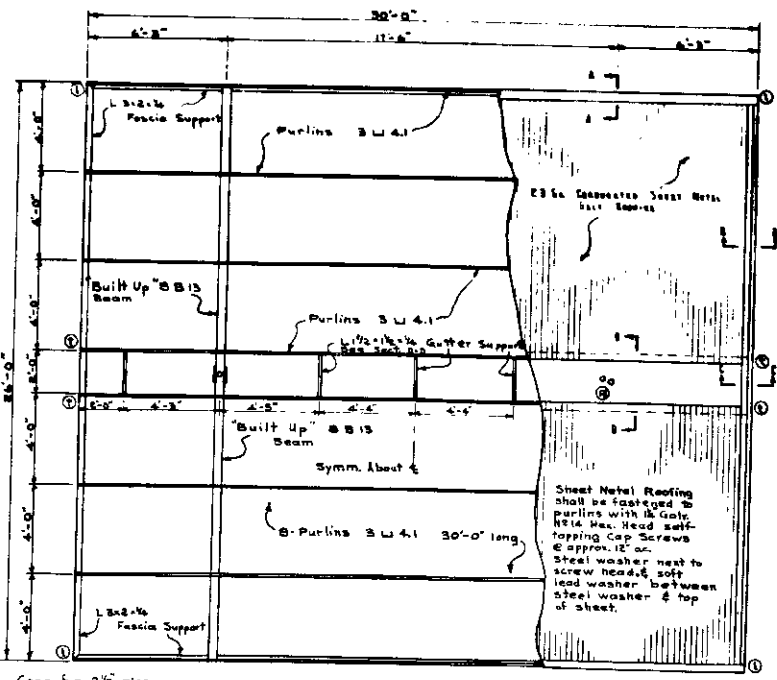 30'-0"
6'-3" 17'-6" 6'-3"
L 3x2x¼
Fascia Support
Purlins 3 ⊔ 4.1
A
A
Sheet Metal
4'-0"
4'-0"
4'-0"
2'-0"
4'-0"
4'-0"
4'-0"
26'-0"
"Built Up" 8 B 13
Beam
Purlins 3 ⊔ 4.1
L 1½x1½x¼ Gutter Support
See Sect.
B
B
4'-3" 4'-5" 4'-4" 4'-4"
"Built Up" 8 B 13
Beam
Symm. About ℄
8-Purlins 3 ⊔ 4.1 30'-0" long
Sheet Metal Roofing
shall be fastened to
purlins with Galv.
Nº14 Hex. Head self-
tapping Cap Screws
@ approx. 12" oc.
Steel washer next to
screw head & soft
lead washer between
steel washer & top
of sheet.
L 3x2x¼
Fascia Support